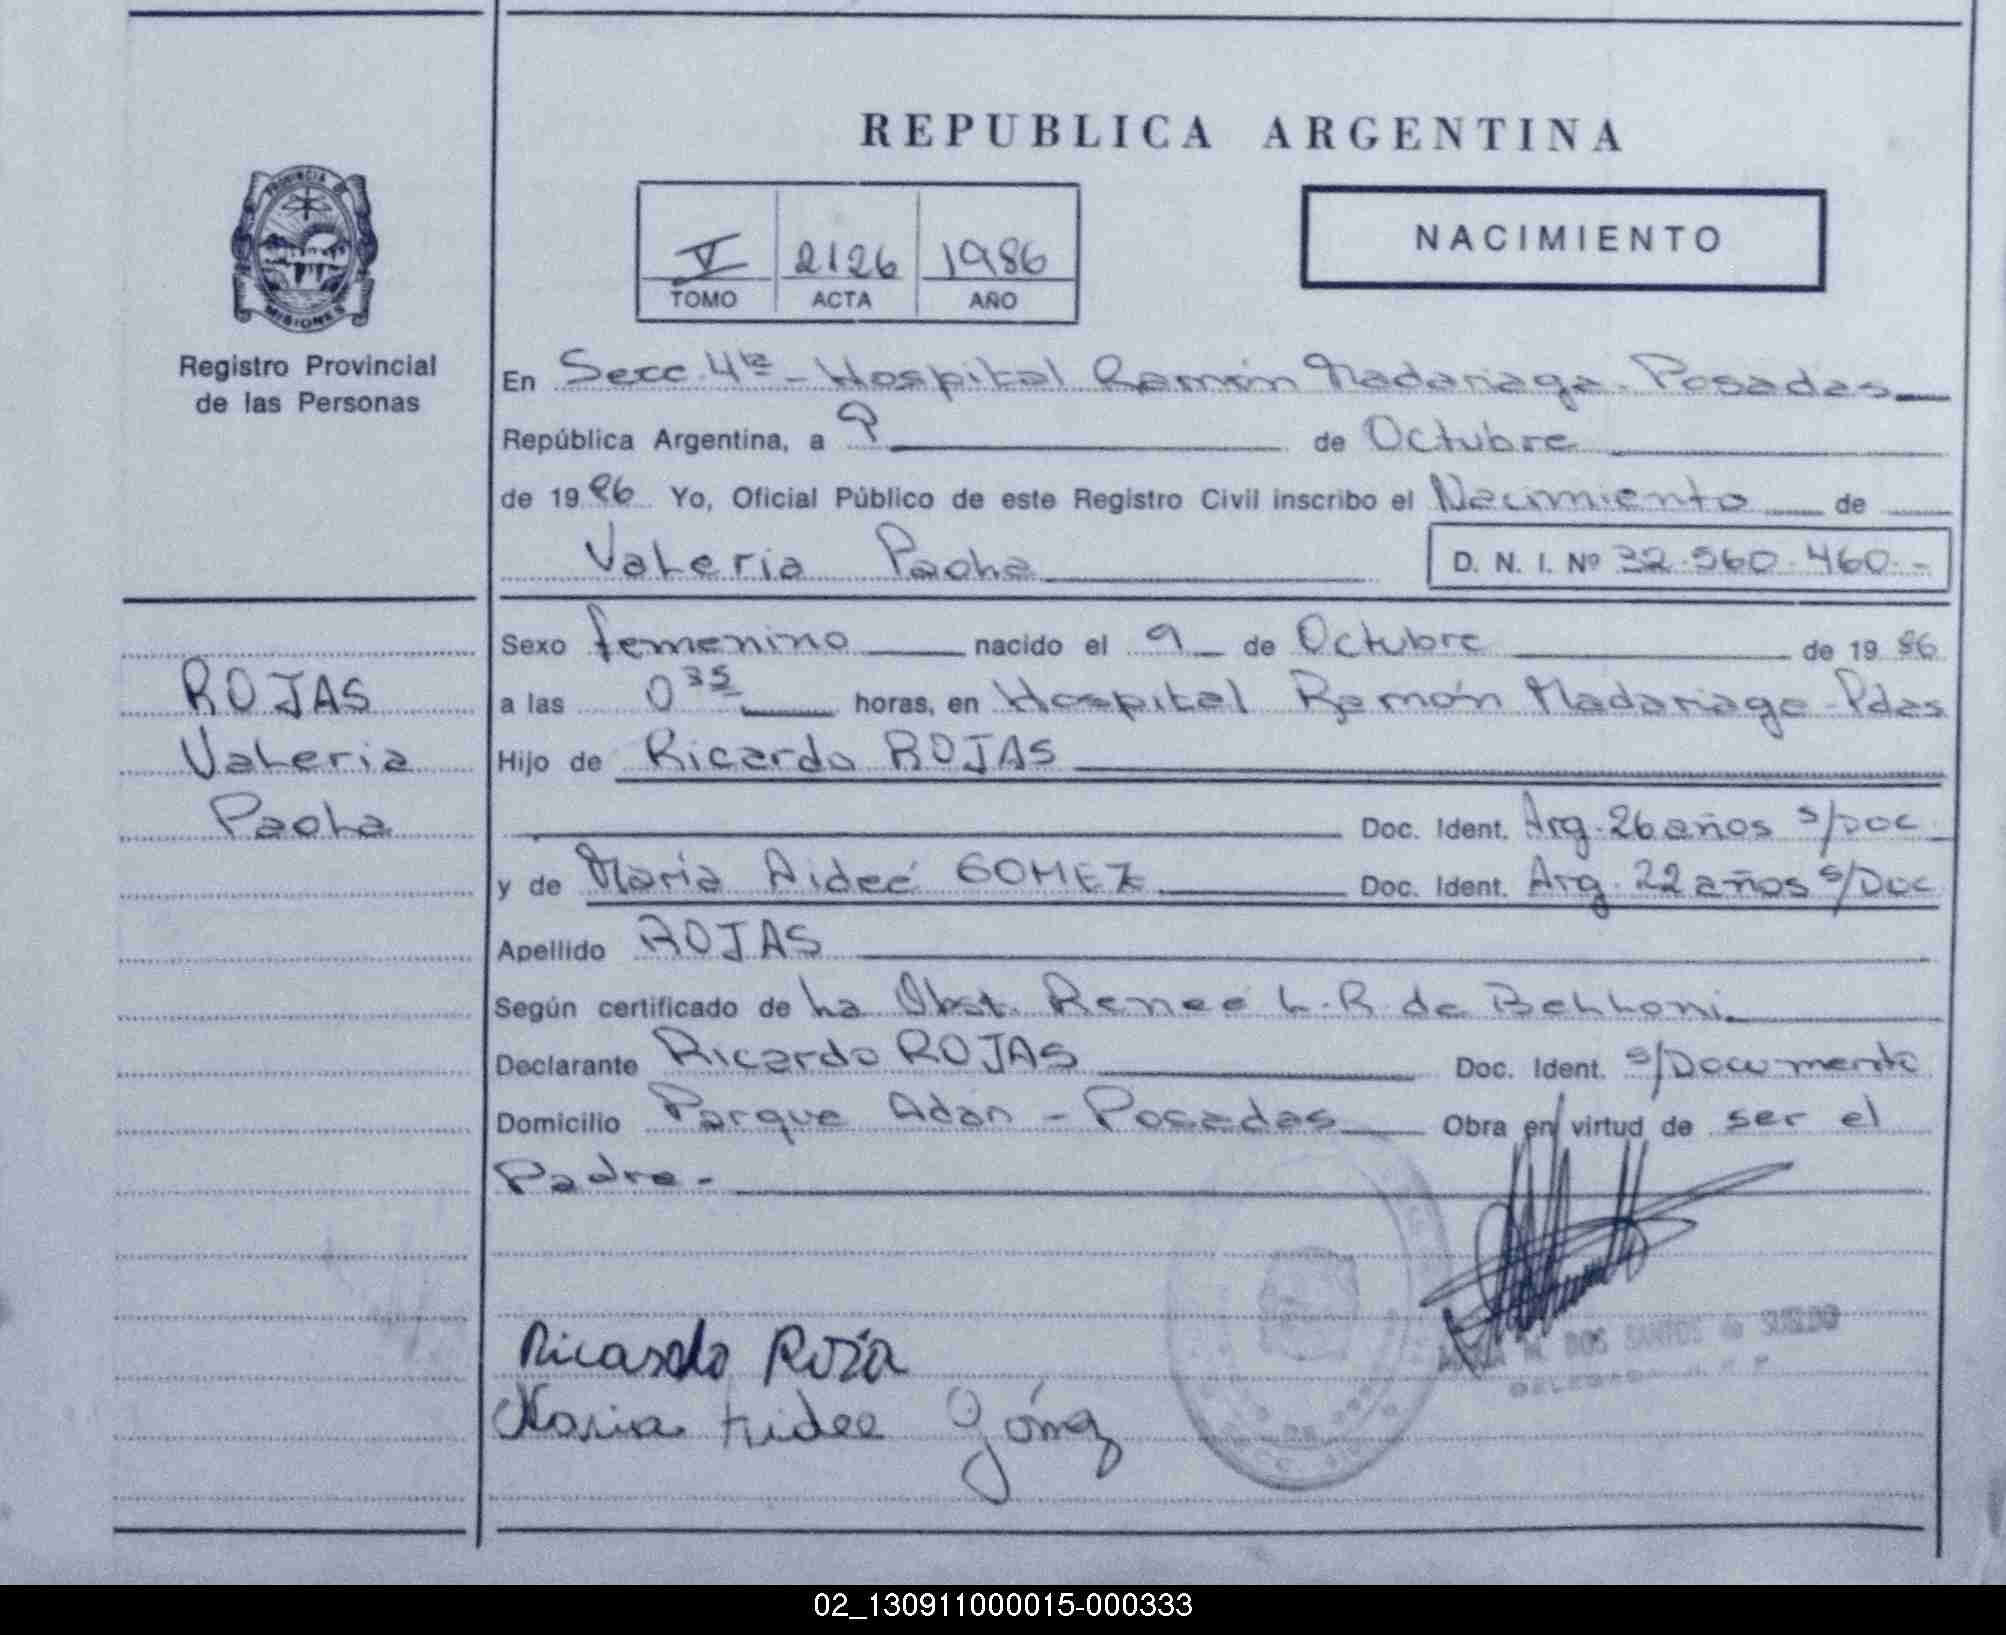 REPUBLICA ARGENTINA
PROVINCIA DE
MISIONES
Registro Provincial
de las Personas
V 2126 1986
TOMO ACTA AÑO
NACIMIENTO
En Secc 4ta - Hospital Ramón Madariaga - Posadas
República Argentina, a 9 de Octubre
de 1986 Yo, Oficial Público de este Registro Civil inscribo el Nacimiento de
Valeria Paola D. N. I. Nº 32.560.460.-
ROJAS
Valeria
Paola
Sexo femenino nacido el 9 de Octubre de 1986
a las 0 35 horas, en Hospital Ramón Madariaga - Pdas
Hijo de Ricardo ROJAS
Doc. Ident. Arg. 26 años s/Doc
y de María Aideé GOMEZ Doc. Ident. Arg. 22 años s/Doc
Apellido ROJAS
Según certificado de La Obst. Reneé L. R. de Belloni
Declarante Ricardo ROJAS Doc. Ident. s/Documento
Domicilio Parque Adán - Posadas Obra en virtud de ser el
Padre.-
Ricardo
Maria Aidee Gómez
M. DOS SANTOS de SUELDO
DELEGADA
02_130911000015-000333